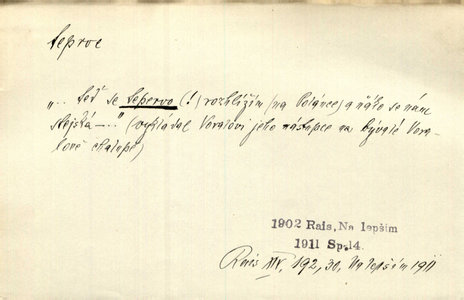 teprve
„.. teď se tepervo (!) rozhlížím (na Polánce) a ňáko se nám
stejská –..." (vykládal Voralovi jeho nástupce na bývalé Vora-
lově chalupě)
1902 Rais, Na lepším
1911 Sp.14.
Rais XIV, 192, 30, Na lepším 1911